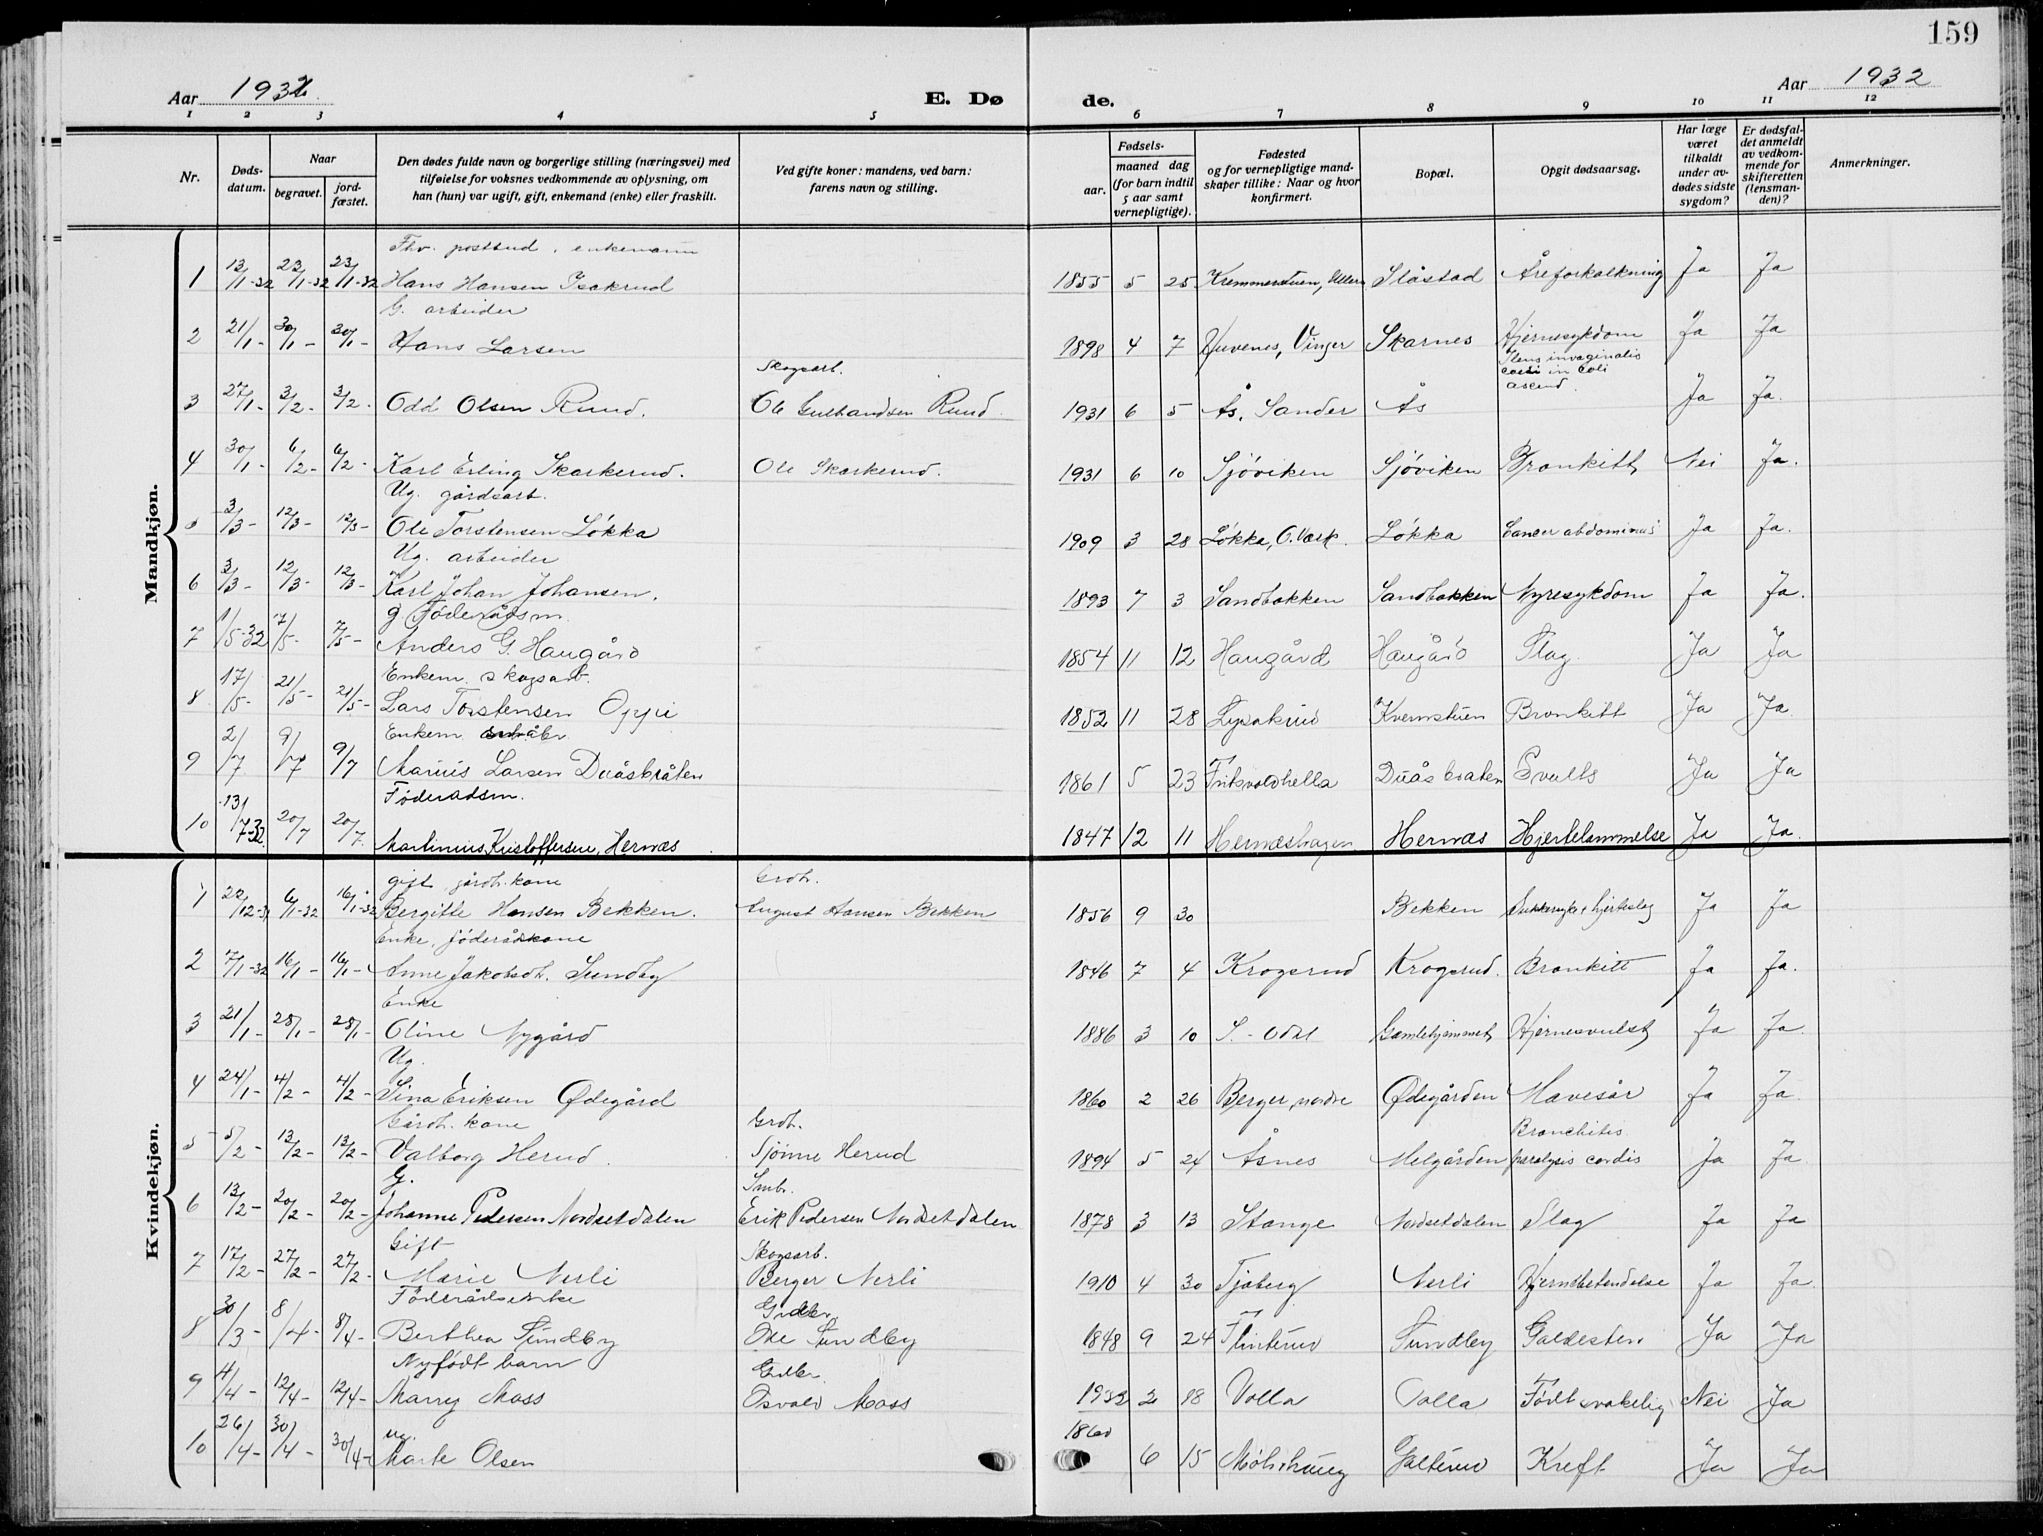 159
Aar 1932
E. Dø
de.
Aar 1932
1 2 3 4 5 6 7 8 9 10 11 12
Nr.
Døds-
datum.
Naar
begravet.
jord-
fæstet.
Den dødes fulde navn og borgerlige stilling (næringsvei) med
tilføielse for voksnes vedkommende av oplysning, om
han (hun) var ugift, gift, enkemand (enke) eller fraskilt.
Ved gifte koner: mandens, ved barn:
farens navn og stilling.
Fødsels-
aar.
maaned dag
(for barn indtil
5 aar samt
vernepligtige).
Fødested
og for vernepligtige mand-
skaper tillike: Naar og hvor
konfirmert.
Bopæl.
Opgit dødsaarsag.
Har læge
været
tilkaldt
under av-
dødes sidste
sygdom?
Er dødsfal-
det anmeldt
av vedkom-
mende for
skifteretten
(lensman-
den)?
Anmerkninger.
Mandkjøn.
Fhv. postbud, enkemann
1 13/1-32 23/1-32 23/1-32 Hans Hansen Isakrud 1855 5 25 Slåstad Åreforkalkning Ja Ja
G. arbeider
2 21/1- 30/1- 30/1- Hans Larsen 1898 4 7 Huvenes, Vinger Skarnes Hjernesykdom Ja Ja
Skogsarb. invaginatis
in coli
ascend.
3 27/1- 3/2- 3/2- Odd Olsen Ruud. Ole Gulbrandsen Ruud. 1931 6 5 Ås, Sander Ås Ja Ja.
4 30/1- 6/2- 6/2- Karl Erling Skarkerud. Ole Skarkerud. 1931 6 10 Sjöviken Sjöviken Bronkitt Nei Ja.
Ug. gårdsarb.
5 3/3- 12/3- 12/3- Ole Torstensen Lökka 1909 3 28 Lökka, O. Værk. Lökka Cancer abdominus Ja Ja.
Ug. arbeider
6 3/3- 12/3- 12/3- Karl Johan Johansen. 1893 7 3 Sandbakken Sandbakken Nyresykdom Ja Ja.
g. Föderådsm.
7 1/5-32 7/5- 7/5- Anders G. Haugård 1854 11 12 Haugård Haugård Slag. Ja Ja
Enkem. skogsarb.
8 17/5- 21/5- 21/5- Lars Torstensen Oppi 1852 11 28 Lysakrud Kvernstuen Bronkitt Ja Ja
Enkem.
9 2/7 9/7 9/7 Marius Larsen Duåsbråten 1861 5 23 Duåsbraaten Svulls Ja Ja
Föderadsm.
10 13/7-32 20/7 20/7. Martinius Kristoffersen, Hernæs 1847 12 11 Hernæshagen Hernæs Hjertelammelse Ja Ja.
Kvindekjøn.
gift, gårdb. kone Grdb.
1 6/1-32 16/1-32 Bergitte Hansen Bekken. August Hansen Bekken 1856 9 30 Bekken Sukkersyke, hjerteslag Ja Ja
Enke, föderådskone
2 7/1-32 16/1- 16/1- Anne Jakobsdt. Sundby 1846 7 4 Krogsrud Krogsrud. Bronkitt Ja Ja.
Enke
3 21/1- 28/1- 28/1- Oline Nygård 1886 3 10 S.-Odal Gamlehjemmet, Hjernesvulst Ja Ja
Ug.
4 24/1- 4/2- 4/2- Sina Eriksen Ødegård 1860 2 26 Berger, nordre Ødegården Mavesår Ja Ja.
Gårdb. kone Grdb. Bronchitis.
5 5/2- 13/2- 13/2- Valborg Herud. Sjönne Herud 1894 5 24 Åsnes Melgården paralysis cordis Ja Ja.
G. Smbr.
6 13/2- 20/2- 20/2- Johanne Pedersen Nordsetdalen Erik Pedersen Nordsetdalen 1878 3 13 Stange Nordsetdalen Slag Ja Ja
Gift Skogsarb.
7 17/2- 27/2- 27/2- Marie Nerli Berger Nerli 1910 4 30 Tjaberg Nerli Hjernebetendelse Ja Ja
Föderådsenke Grdbr.
8 30/3- 8/4- 8/4- Berthea Sundby Ole Sundby 1848 9 24 Flinterud Sundby Galdesten Ja Ja
Nyfödt barn Grdbr.
9 4/4- 12/4- 12/4- Marry Moss Osvald Moss 1932 2 18 Volla Volla Födt svakelig Nei Ja
ug. 1860
10 26/4- 30/4- 30/4- Marte Olsen 6 15 Mölshaug Galterud Kreft Ja Ja